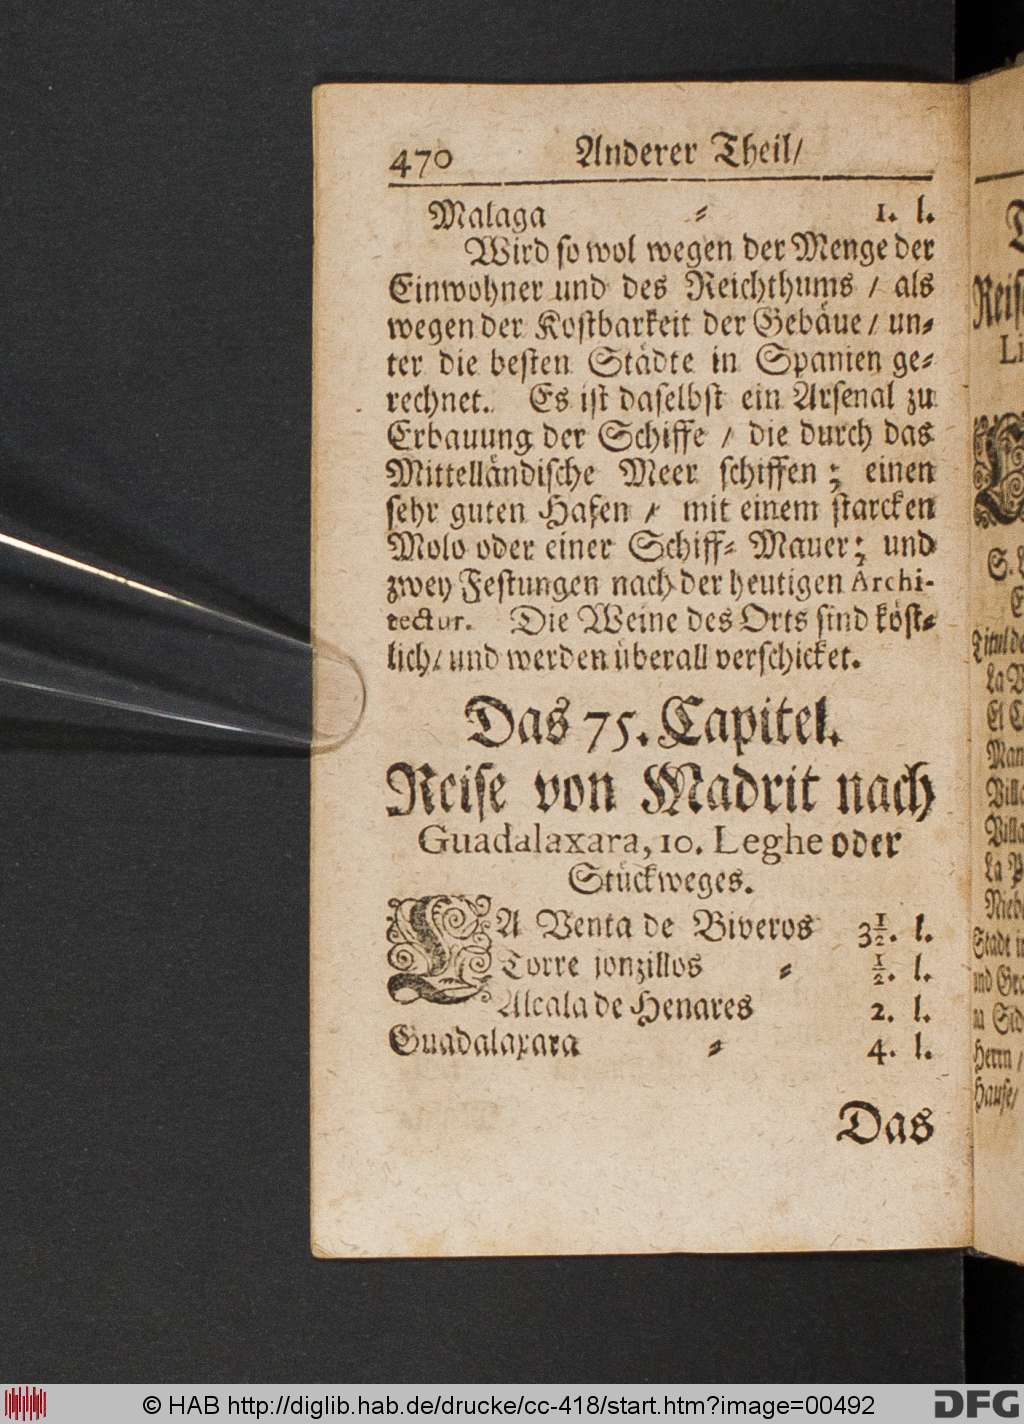 470 Anderer Theil/
Malaga ⸗ 1. l.
Wird so wol wegen der Menge der
Einwohner und des Reichthums / als
wegen der Kostbarkeit der Gebäue / un⸗
ter die besten Städte in Spanien ge⸗
rechnet. Es ist daselbst ein Arsenal zu
Erbauung der Schiffe / die durch das
Mittelländische Meer schiffen; einen
sehr guten Hafen / mit einem starcken
Molo oder einer Schiff⸗ Mauer; und
zwey Festungen nach der heutigen Archi-
tectur. Die Weine des Orts sind köst⸗
lich / und werden überall verschicket.
Das 75. Capitel.
Reise von Madrit nach
Guadalaxara, 10. Leghe oder
Stückweges.
LA Venta de Biveros 3½. l.
Torre jonzillos ⸗ ½. l.
Alcala de Henares 2. l.
Guadalaxara ⸗ 4. l.
Das
Reis
Li
S.
Titul de
La V
El C
Man
Villa
Villa
La P
Nieb
Stadt in
und Gro
na Sid
Herrn /
Hause/
© HAB http://diglib.hab.de/drucke/cc-418/start.htm?image=00492
DFG